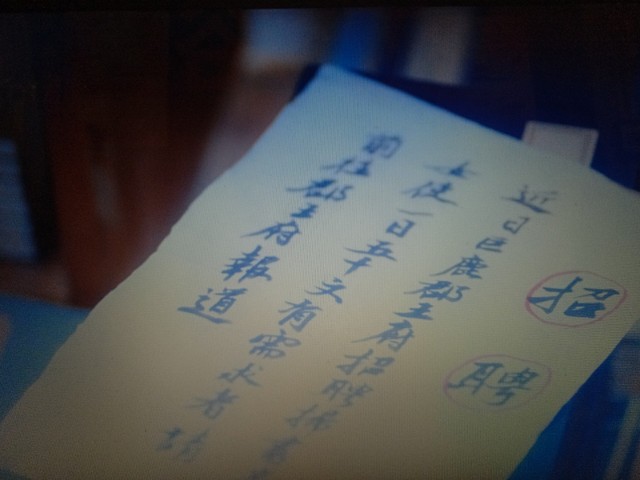 招聘
近日巨鹿郡王府招聘
女使一日五十文有需求者請
前往郡王府報道